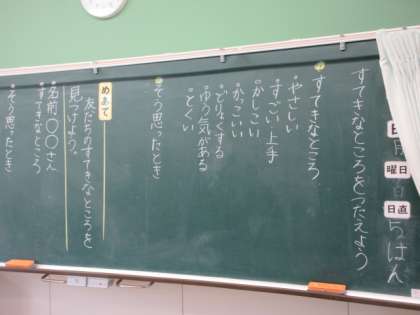 月
日
曜日
日直
ちはん
すてきなところをつたえよう
すてきなところ
・やさしい
・すごい・上手
・かしこい
・かっこいい
・どりょくする
・ゆう気がある
・とくい
そう思ったとき
めあて
友だちのすてきなところを
見つけよう。
・名前〇〇さん
・すてきなところ
・そう思ったとき